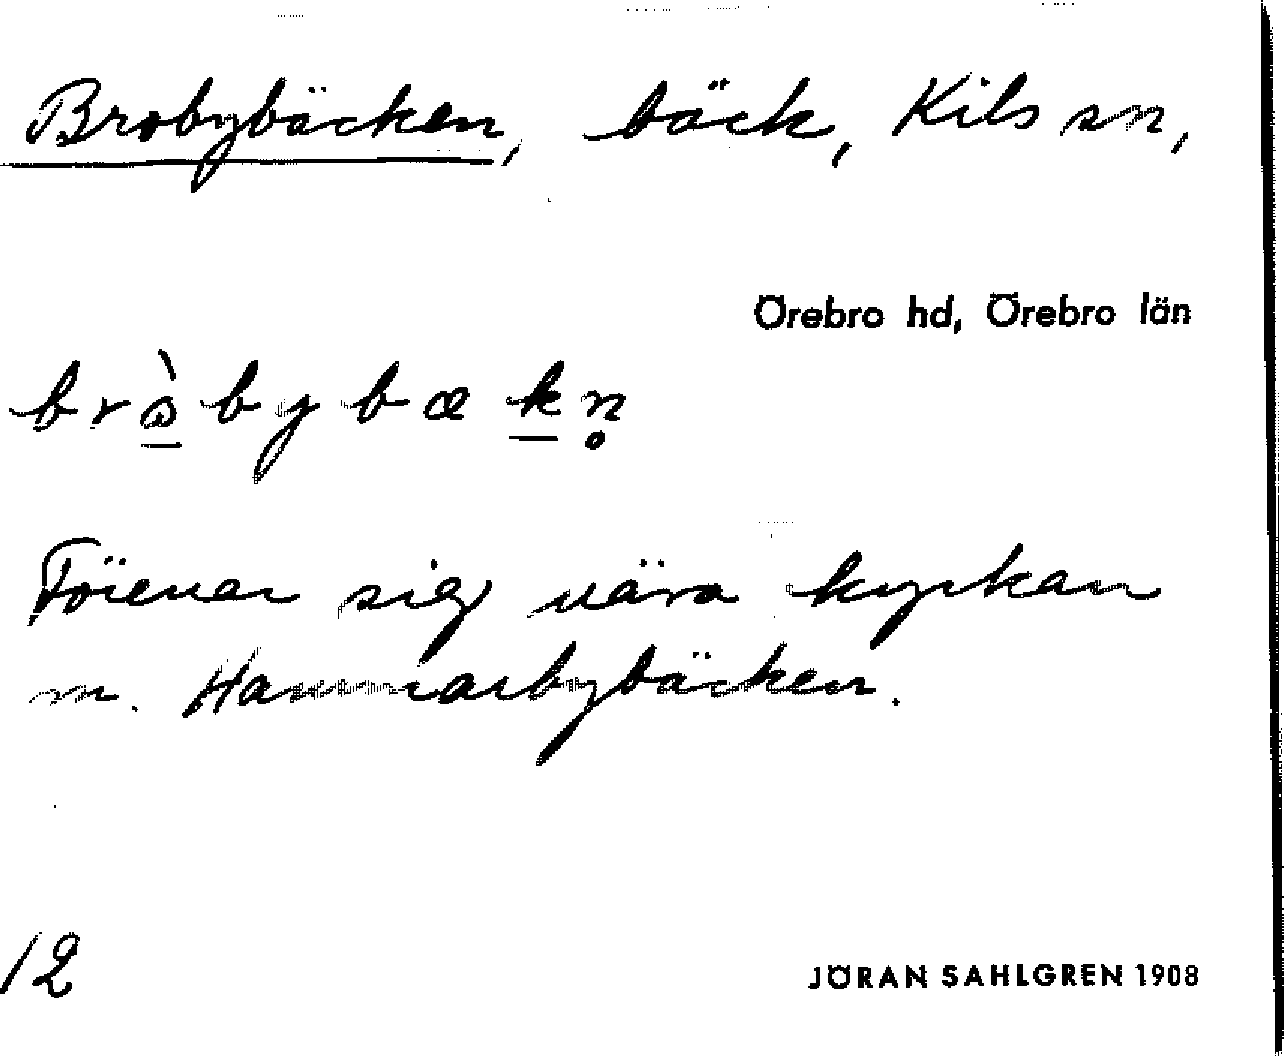 Brobybäcken, bäck, Kils sn,
Örebro hd, Örebro län
Förenar sig nära kyrkan
m. Hammarbybäcken.
12
JÖRAN SAHLGREN 1908